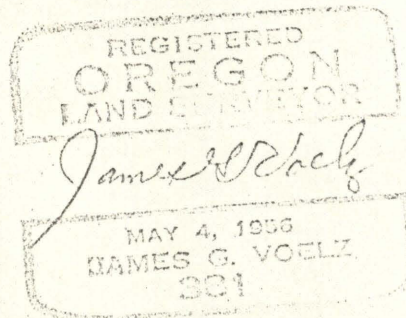 REGISTERED
OREGON
LAND SURVEYOR
James G Voelz
MAY 4, 1956
JAMES G. VOELZ
381